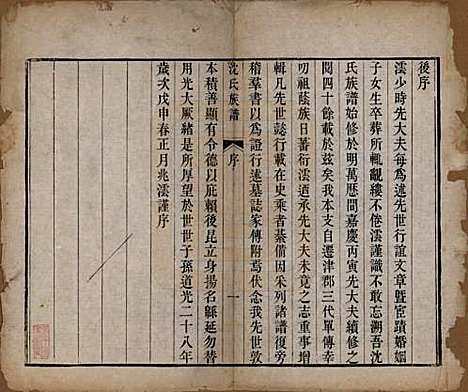 後序
澐少時先大夫每爲述先世行誼文章曁宦蹟婚姻
子女生卒葬所輒覼縷不倦澐謹識不敢忘溯吾沈
氏族譜始修於明萬厯年間嘉慶丙寅先大夫續修之
閱四十餘載於兹矣我本支自遷津郡三代單傳幸
叨祖蔭族日蕃衍澐遒承先大夫未竟之志重事增
輯凡先世懿行載在史乘者綦備因采列諸譜復旁
稽羣書以爲證行述墓誌家傳附焉伏念我先世敦
沈氏族譜
序
一
本積善顯有令德以庇賴後昆立身揚名緜延勿替
用光大厥緒是所厚望於世世子孫道光二十八年
歲次戊申春正月兆澐謹序